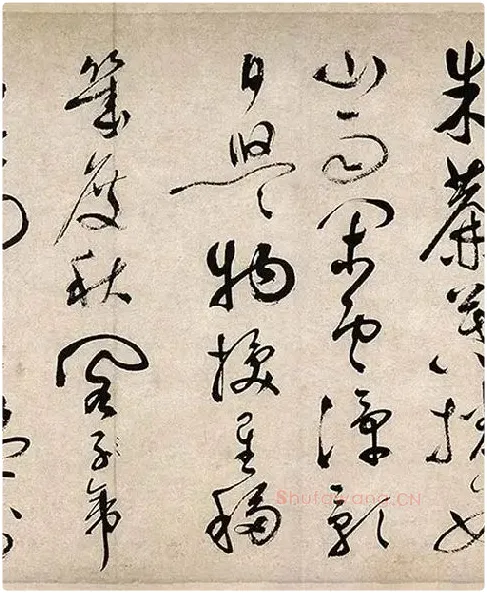 朱簾暮捲西
山雨閑雲潭影
日悠々物換星移
幾度秋閣帝
Shufawang.CN